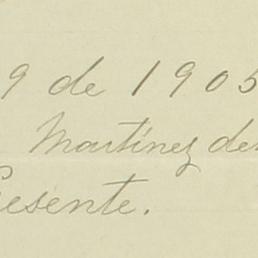 9 de 1905
Martínez de
Presente.